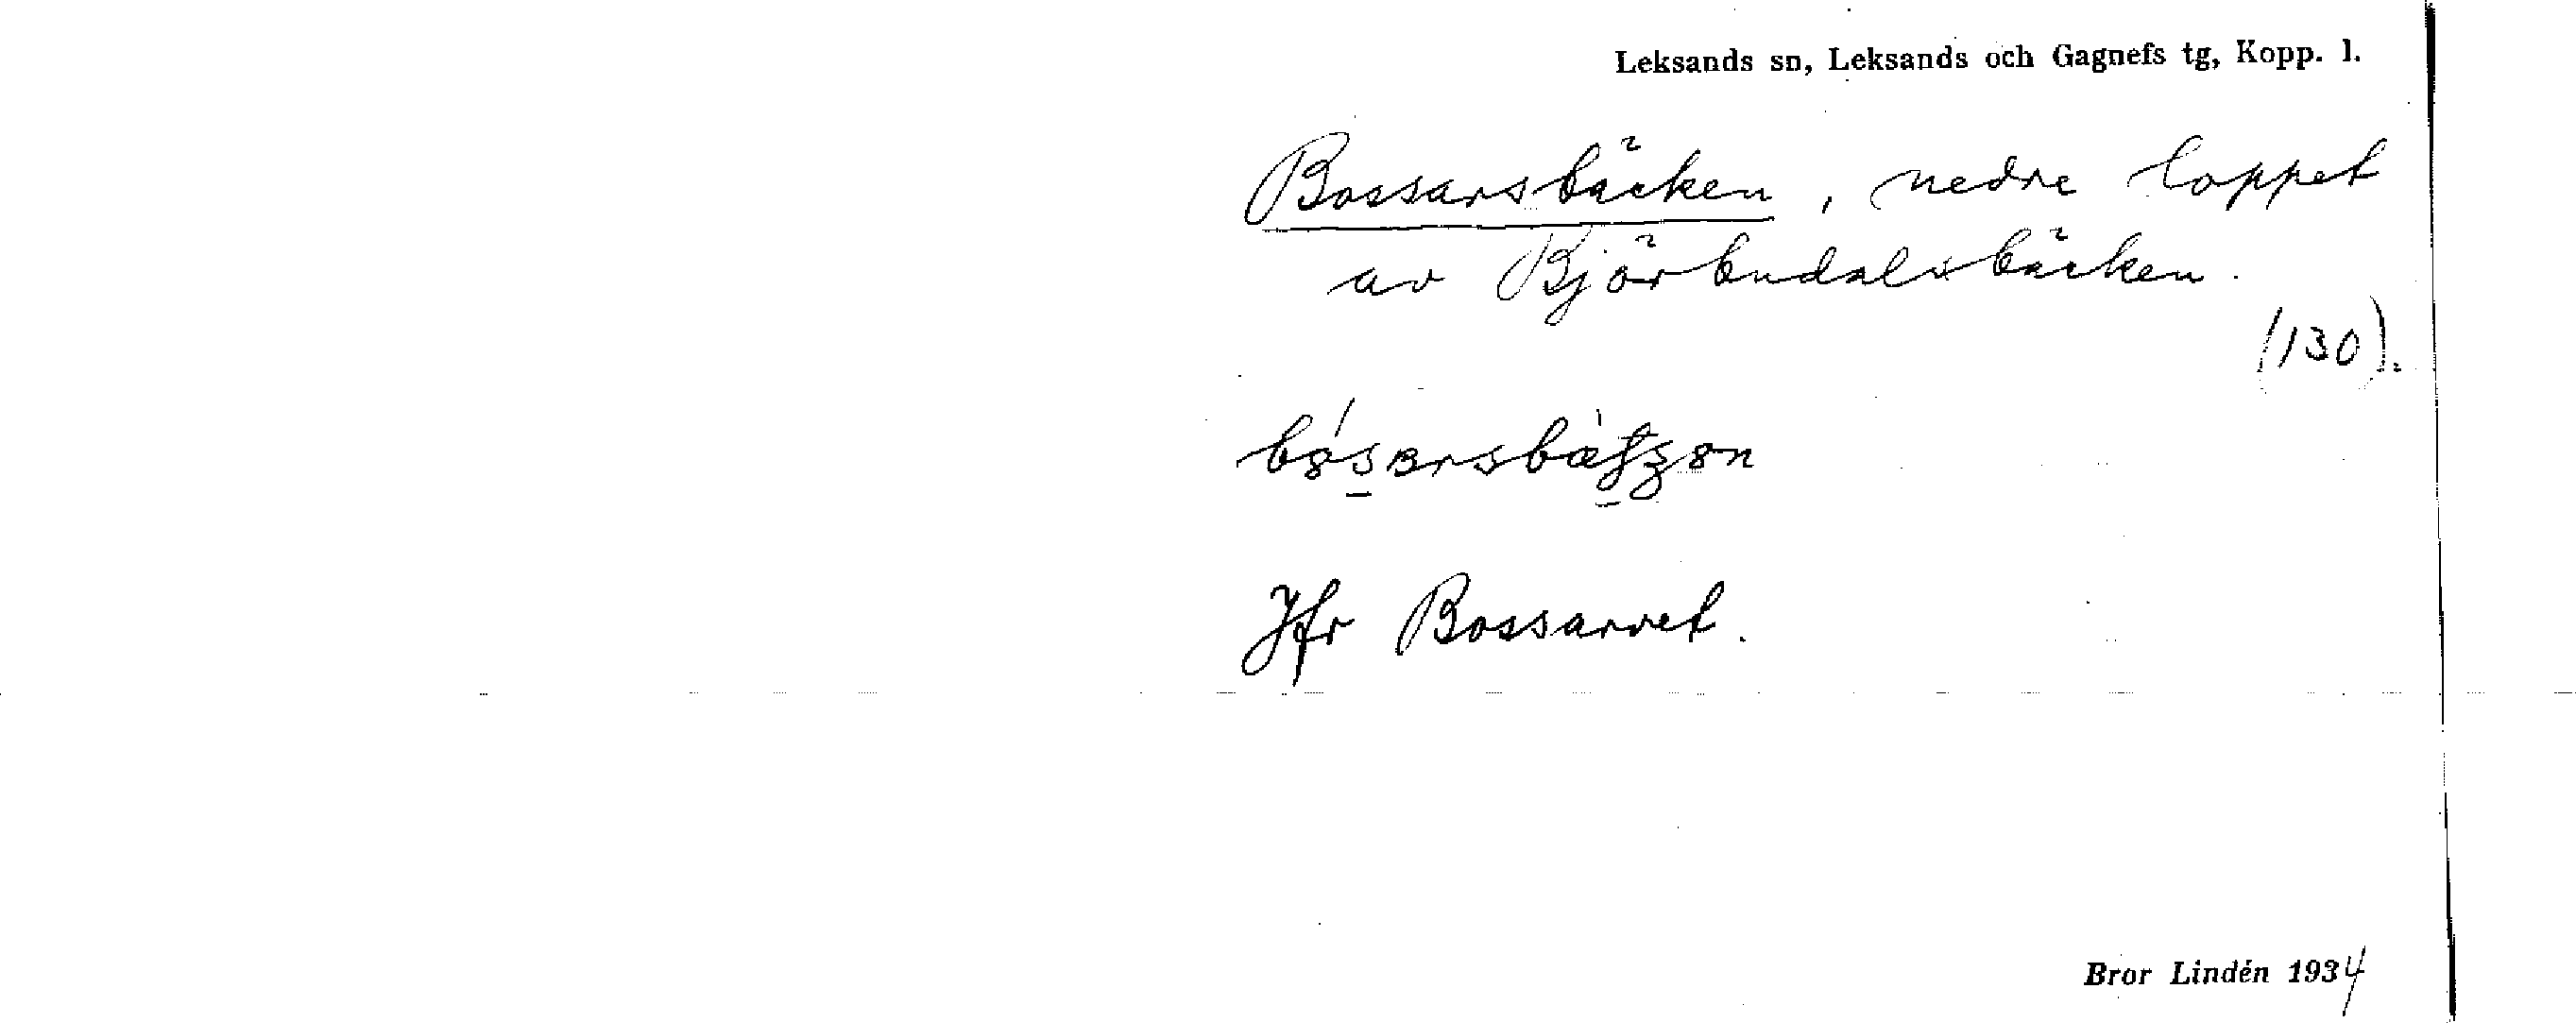 Leksands sn, Leksands och Gagnefs tg, Kopp. l.
Bossarsbäcken, nedre loppet
av Björbudalsbäcken.
(130).
Jfr Bossarvet.
Bror Lindén 1934